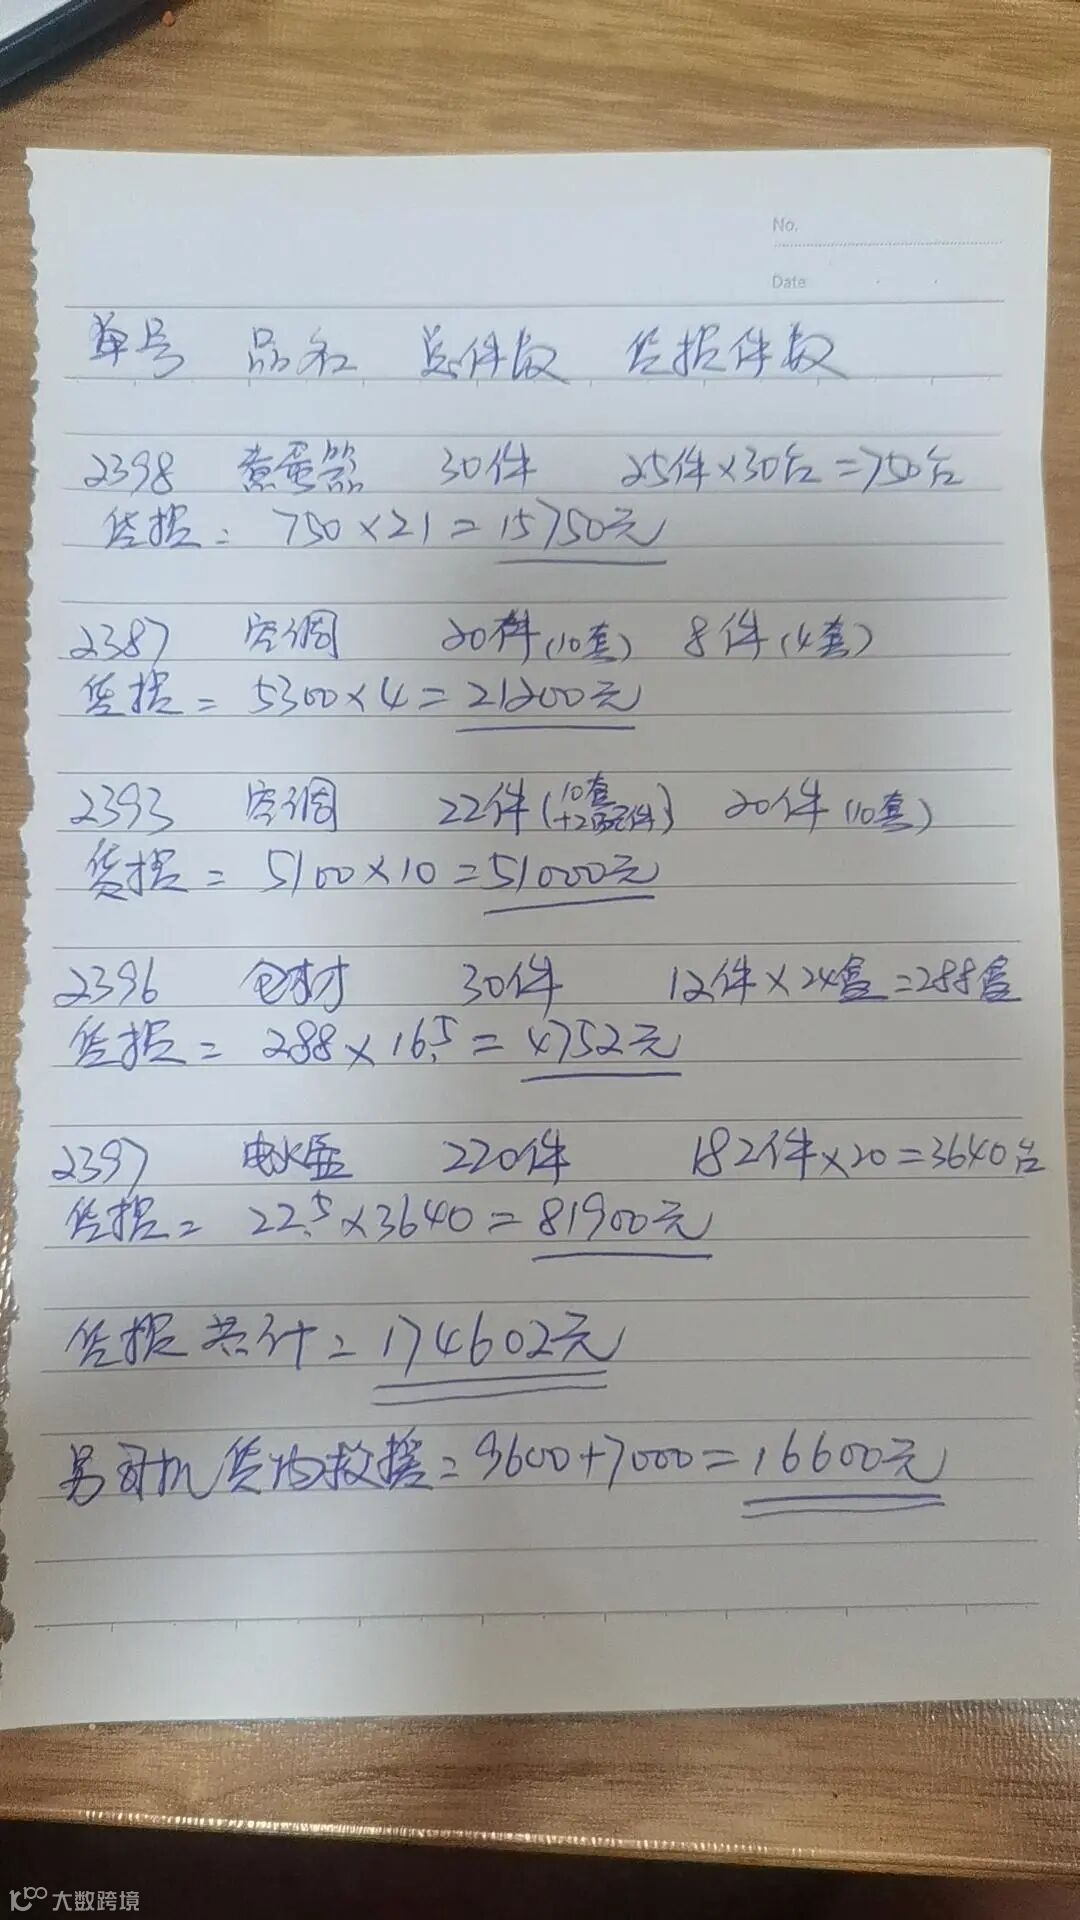 No.
Date
单号 品名 总件数 货损件数
2398 煮蛋器 30件 25件×30台=750台
货损: 750×21=15750元
2387 空调 20件(10套) 8件(4套)
货损= 5300×4=21200元
2393 空调 22件(10套+2配件) 20件(10套)
货损= 5100×10=51000元
2396 仓材 30件 12件×24盒=288盒
货损= 288×16.5=4752元
2397 电水壶 220件 182件×20=3640台
货损= 22.5×3640=81900元
货损共计=174602元
另司机货物救援=9600+7000=16600元
大数跨境